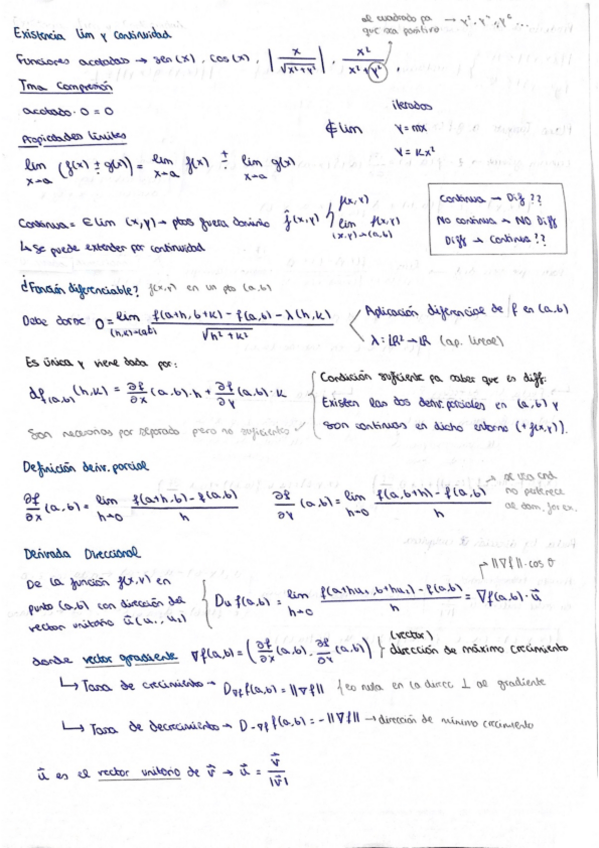 al cuadrado pa → y², y⁴, y⁶ ...
que sea positivo
Existencia lim y continuidad
Funciones acotadas → sen(x), cos(x), |x/√(x²+y²)|, x²/(x²+y²),
Tma Compresión
acotado · 0 = 0
Propiedades límites
∄ lim
iterados
y = mx
y = Kx²
lim x→a (f(x) ± g(x)) = lim x→a f(x) ± lim x→a g(x)
Continua = ∈ lim (x,y) → ptos fuera dominio f̂(x,y) { f(x,y)
lim (x,y)→(a,b) f(x,y)
↳ Se puede extender por continuidad
Continua → Dif ??
No continua → NO Diff
Diff → Continua ??
¿Función diferenciable? f(x,y) en un pto (a,b)
Debe darse: 0 = lim (h,k)→(a,b) (f(a+h, b+k) - f(a,b) - λ(h,k))/√(h²+k²)
Aplicación diferencial de f en (a,b)
λ = ℝ² → ℝ (ap. lineal)
Es única y viene dada por:
df(a,b)(h,k) = ∂f/∂x (a,b)·h + ∂f/∂y (a,b)·k
Son necesarias por separado pero no suficientes
Condición suficiente pa saber que es diff.
Existen las dos deriv. parciales en (a,b) y
son continuas en dicho entorno (+ f(x,y)).
Definición deriv. parcial
∂f/∂x (a,b) = lim h→0 (f(a+h,b) - f(a,b))/h
∂f/∂y (a,b) = lim h→0 (f(a,b+h) - f(a,b))/h
→ se usa cnd
no pertenece
al dom.
Derivada Direccional
→ ||∇f||·cos θ
De la función f(x,y) en
punto (a,b) con dirección del
vector unitario ū(u₁, u₂)
Du f(a,b) = lim h→0 (f(a+hu₁, b+hu₂) - f(a,b))/h = ∇f(a,b)·ū
donde vector gradiente ∇f(a,b) = (∂f/∂x (a,b), ∂f/∂y (a,b)) } (vector)
dirección de máximo crecimiento
↳ Tasa de crecimiento → D∇f f(a,b) = ||∇f|| f es nula en la direcc ⊥ al gradiente
↳ Tasa de decrecimiento → D-∇f f(a,b) = -||∇f|| → dirección de mínimo crecimiento
u⃗ es el vector unitario de v⃗ → u⃗ = v⃗/|v⃗|